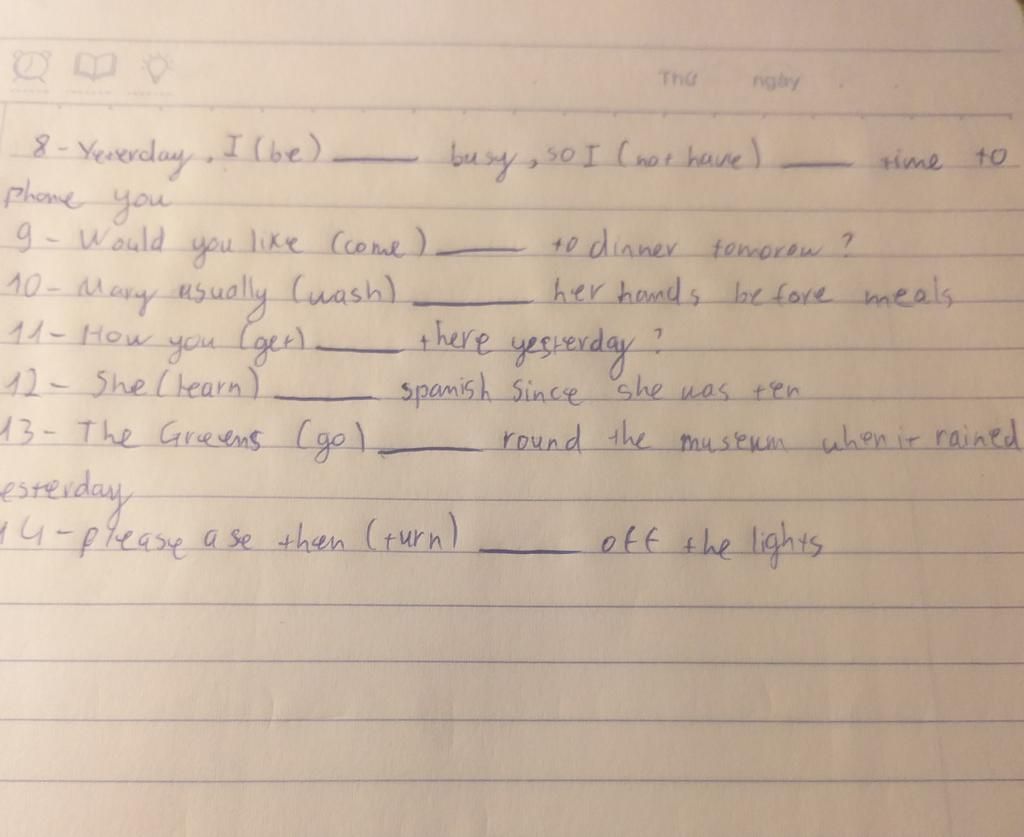 Thứ ngày
8 - Yererday, I (be) ____ busy, so I (not have) ____ time to
phone you
9 - Would you like (come) ____ to dinner tomorow ?
10 - Mary usually (wash) ____ her hands before meals
11 - How you (get) ____ there yesterday ?
12 - She (learn) ____ spanish since she was ten
13 - The Greens (go) ____ round the museum when it rained
esterday
14 - please ase then (turn) ____ off the lights